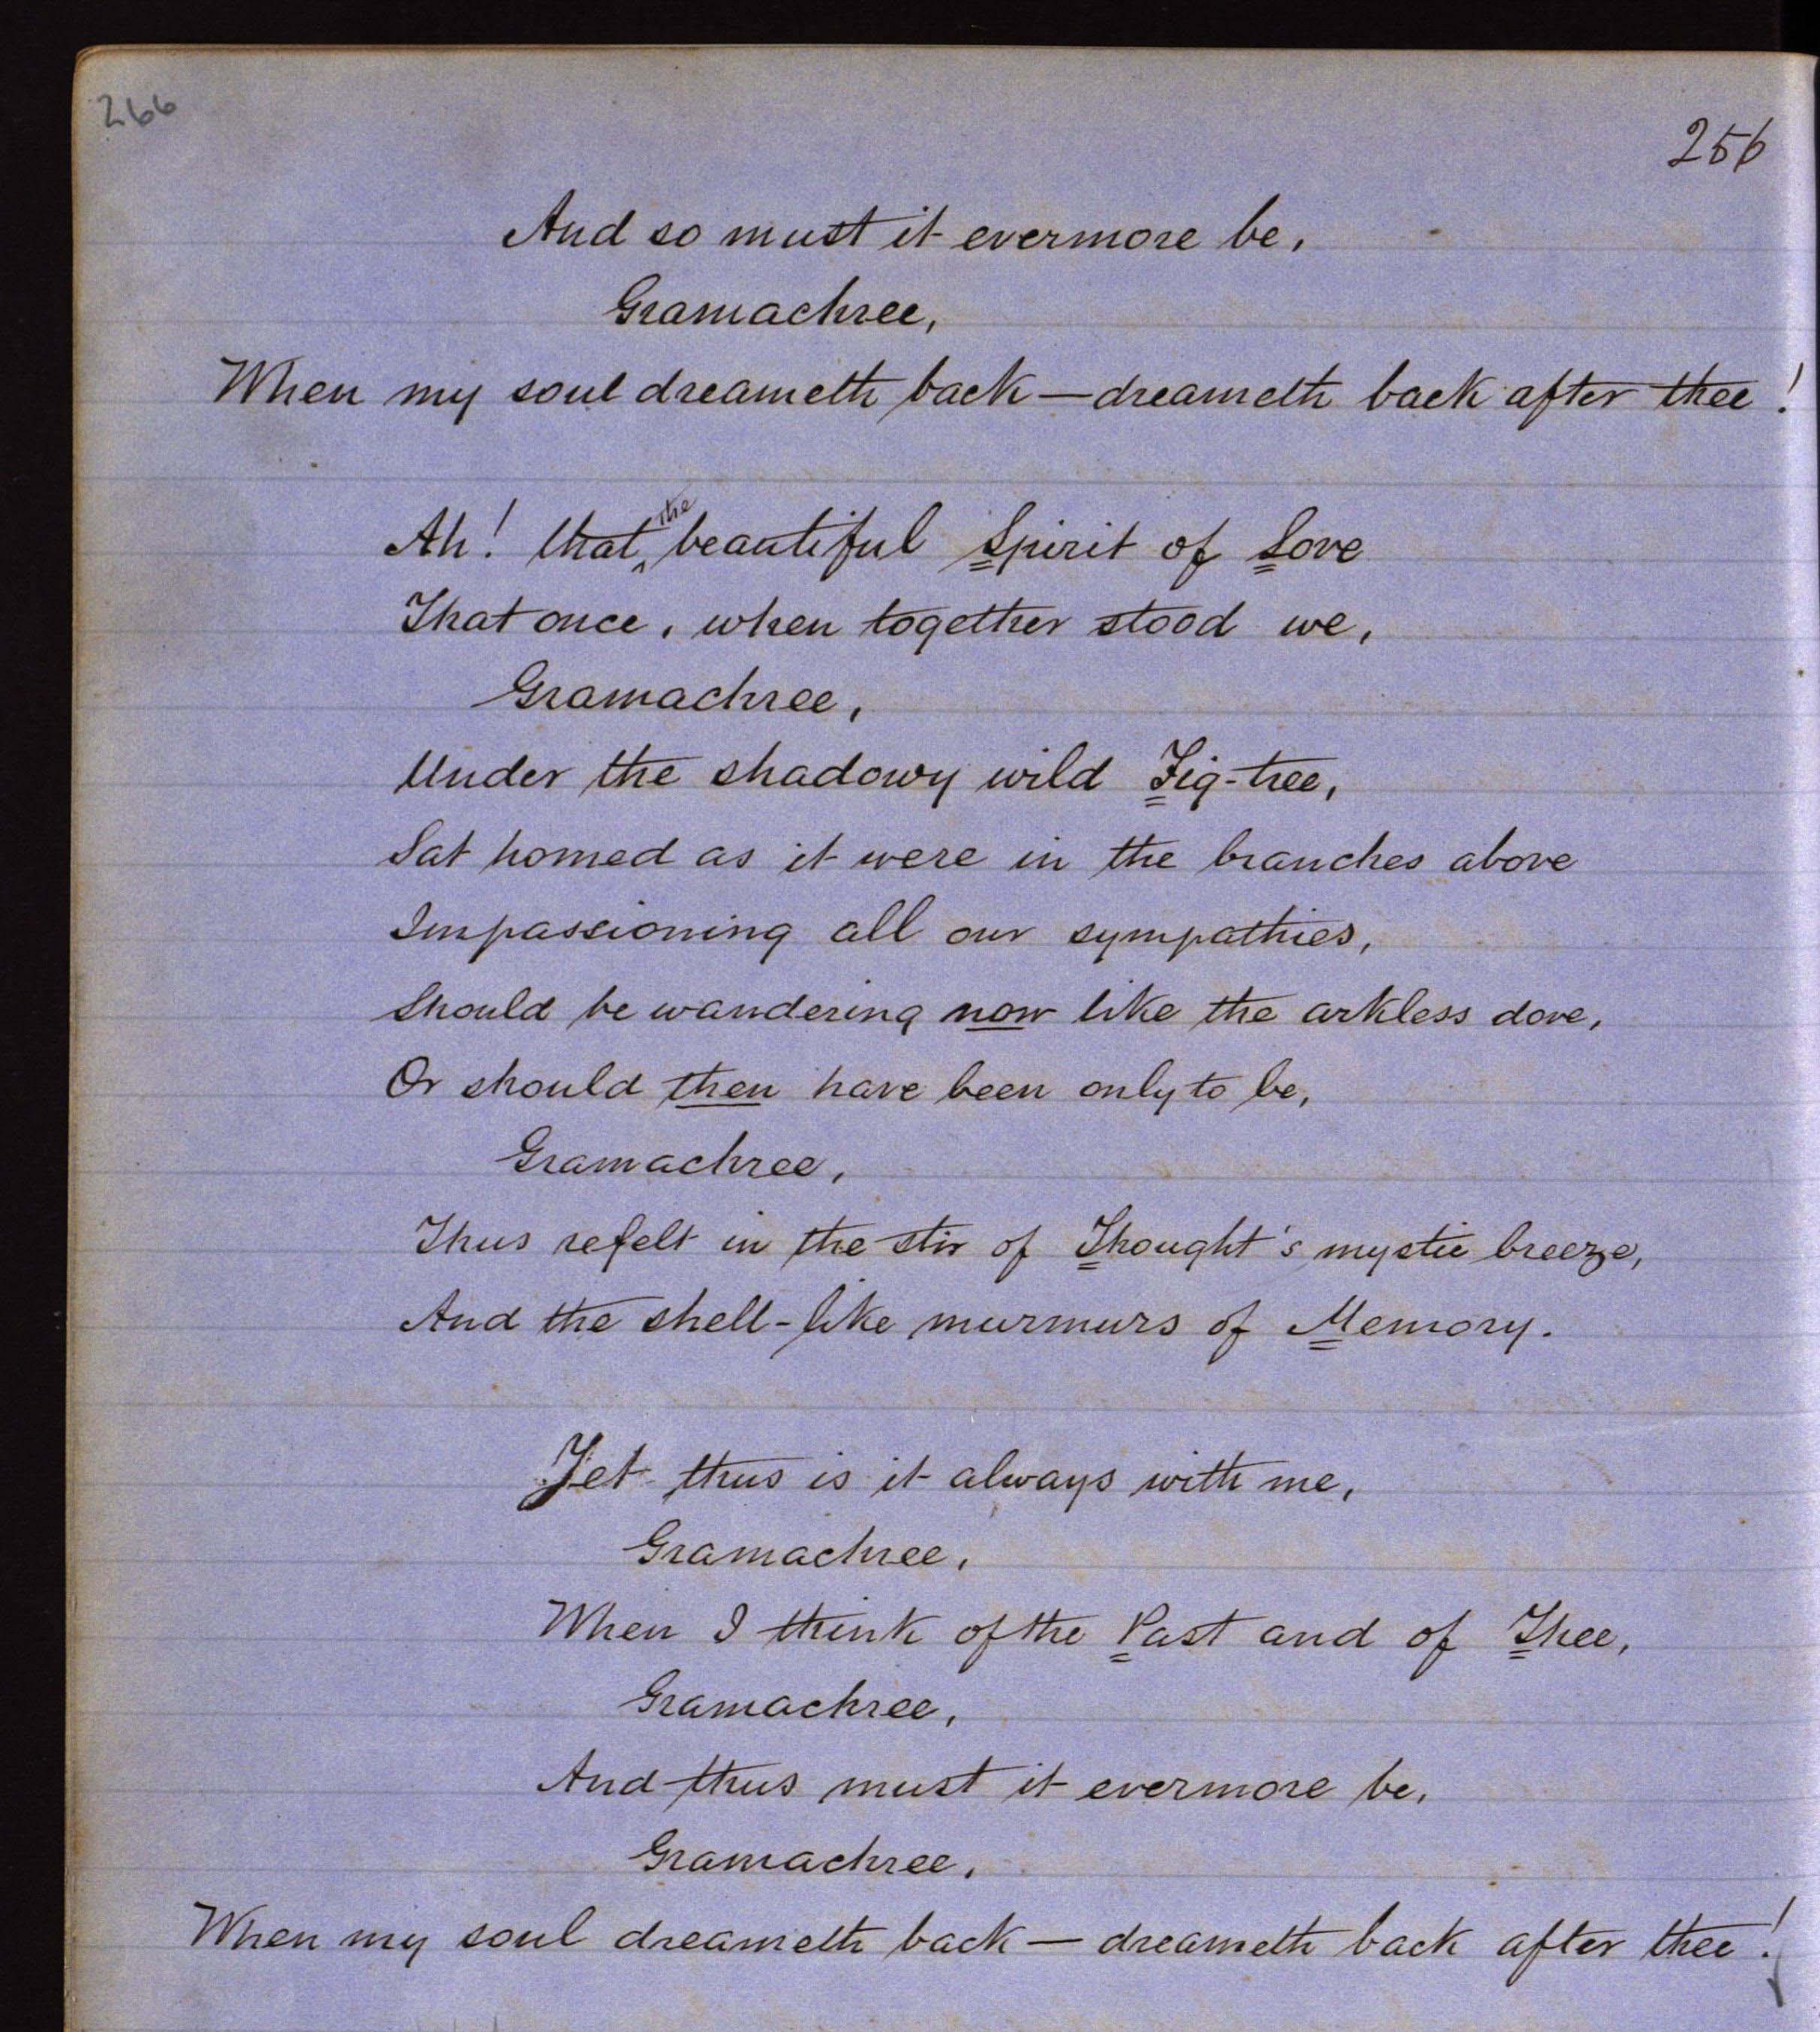 266
256
And so must it evermore be,
Gramachree,
When my soul dreameth back — dreameth back after thee!
Ah! that the beautiful Spirit of Love
That once, when together stood we,
Gramachree,
Under the shadowy wild Fig-tree,
Sat homed as it were in the branches above
Impassioning all our sympathies,
Should be wandering now like the arkless dove,
Or should then have been only to be,
Gramachree,
Thus refelt in the stir of Thought's mystic breeze,
And the shell-like murmurs of Memory.
Yet thus is it always with me,
Gramachree,
When I think of the Past and of Thee,
Gramachree,
And thus must it evermore be,
Gramachree,
When my soul dreameth back — dreameth back after thee!